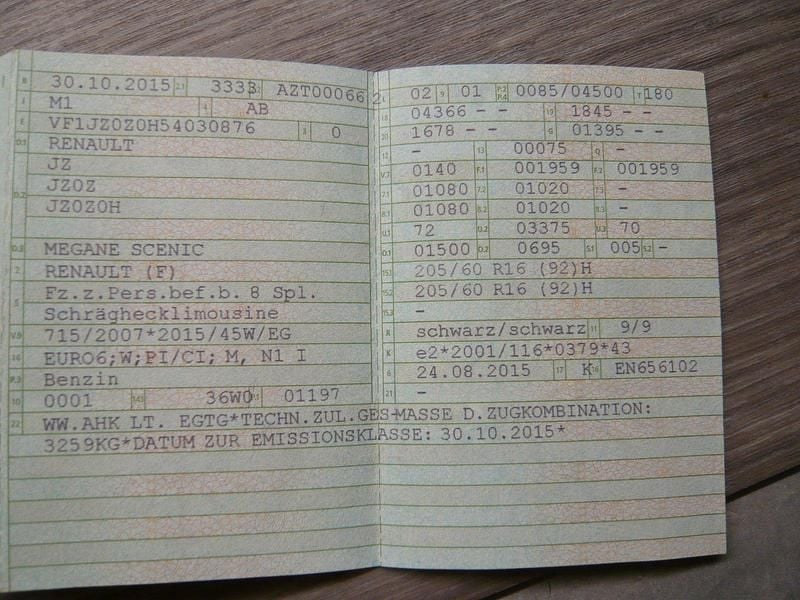 B 30.10.2015 2.1 3333 2.2 AZT000662
J M1 4 AB
E VF1JZ0Z0H54030876 3 0
D.1 RENAULT
JZ
D.2 JZ0Z
JZ0Z0H
D.3 MEGANE SCENIC
2 RENAULT (F)
5 Fz.z.Pers.bef.b. 8 Spl.
Schräghecklimousine
V.9 715/2007*2015/45W/EG
14 EURO6;W;PI/CI; M, N1 I
P.3 Benzin
10 0001 14.1 36W0 P.1 01197
L 02 9 01 P.2 P.4 0085/04500 T 180
18 04366 - - 19 1845 - -
20 1678 - - G 01395 - -
12 - 13 00075 Q -
V.7 0140 F.1 001959 F.2 001959
7.1 01080 7.2 01020 7.3 -
8.1 01080 8.2 01020 8.3 -
U.1 72 U.2 03375 U.3 70
O.1 01500 O.2 0695 S.1 005 S.2 -
15.1 205/60 R16 (92)H
15.2 205/60 R16 (92)H
15.3 -
R schwarz/schwarz 11 9/9
K e2*2001/116*0379*43
6 24.08.2015 17 K 16 EN656102
21 -
22 WW.AHK LT. EGTG*TECHN.ZUL.GES-MASSE D.ZUGKOMBINATION:
3259KG*DATUM ZUR EMISSIONSKLASSE: 30.10.2015*